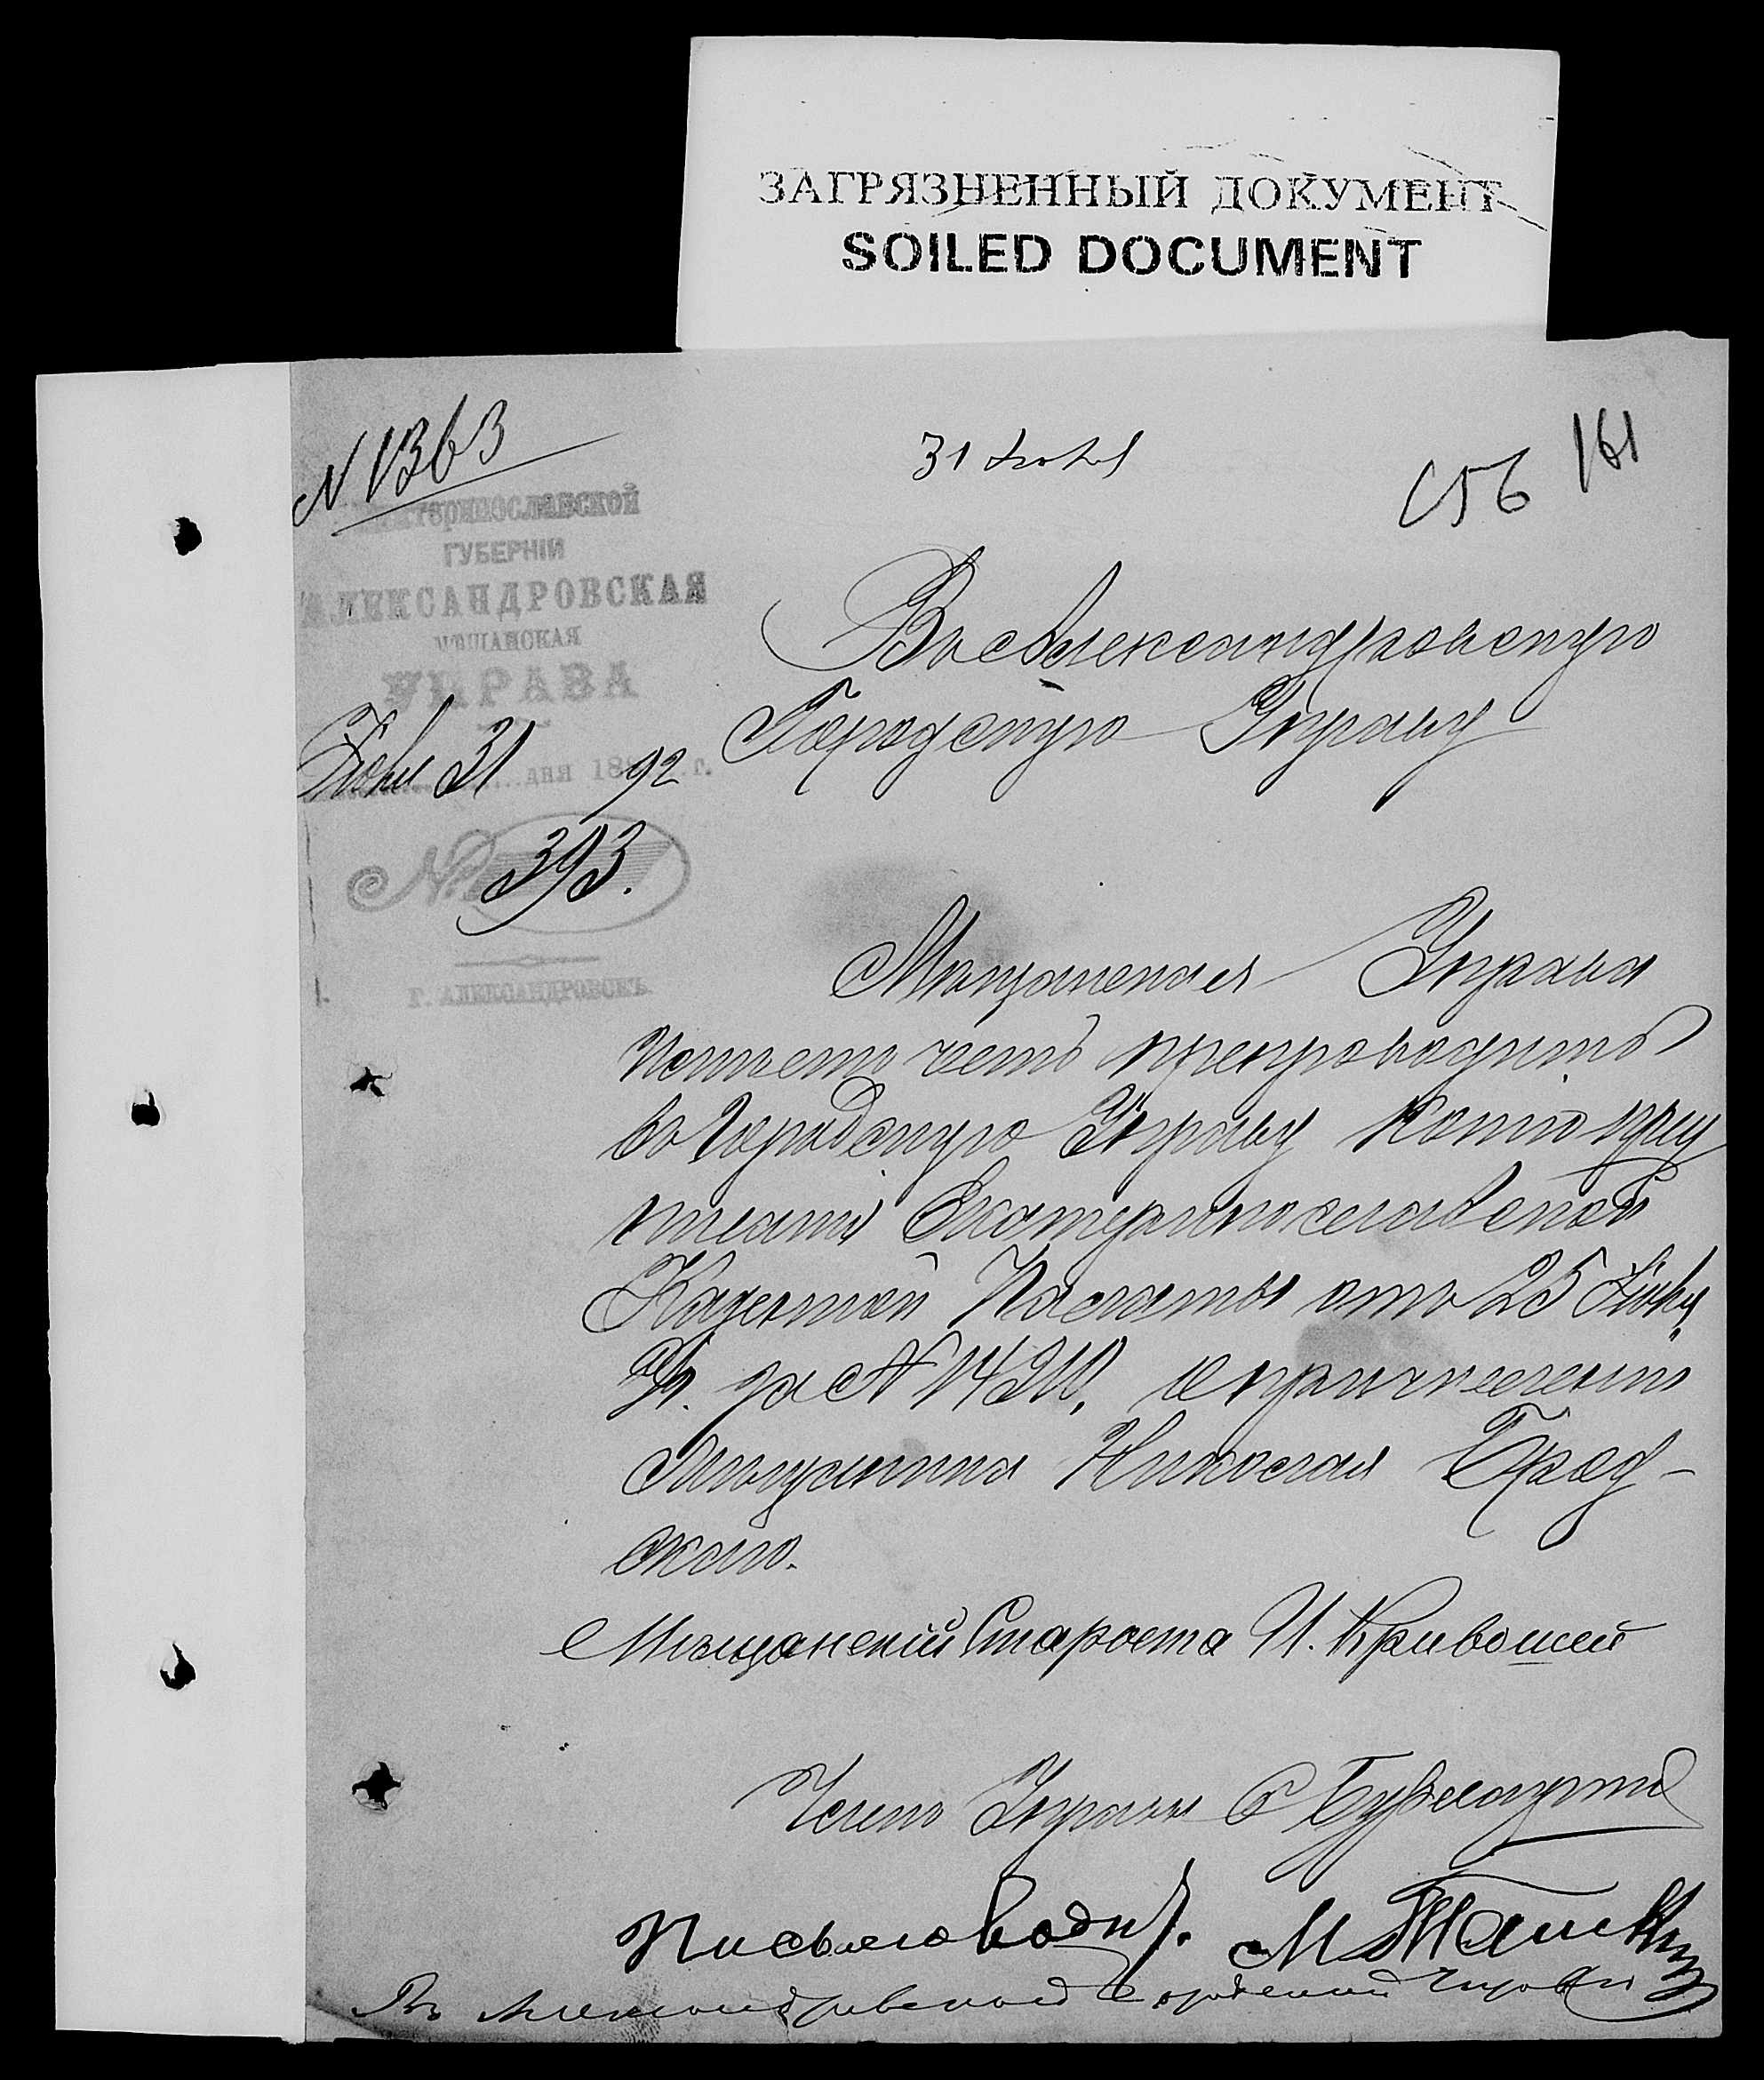 ЗАГРЯЗНЕННЫЙ ДОКУМЕНТ
SOILED DOCUMENT
N 1363
31
156
161
Екатеринославской
ГУБЕРНІИ
АЛЕКСАНДРОВСКАЯ
МѢЩАНСКАЯ
УПРАВА
31 дня 1892 г.
№ 393.
Г. АЛЕКСАНДРОВСКЪ.
Въ Александровскую
Городскую Управу
Мѣщанская Управа
имѣетъ честь препроводить
въ Городскую Управу копію пред
писанія Екатеринославской
Казенной Палаты отъ 25
за N о причисленіи
мѣщанина Николая Брод-
скаго.
Мѣщанскій Староста И. Кривошей
Членъ Управы
Письмоводит.
Въ Александровской Городской Управѣ